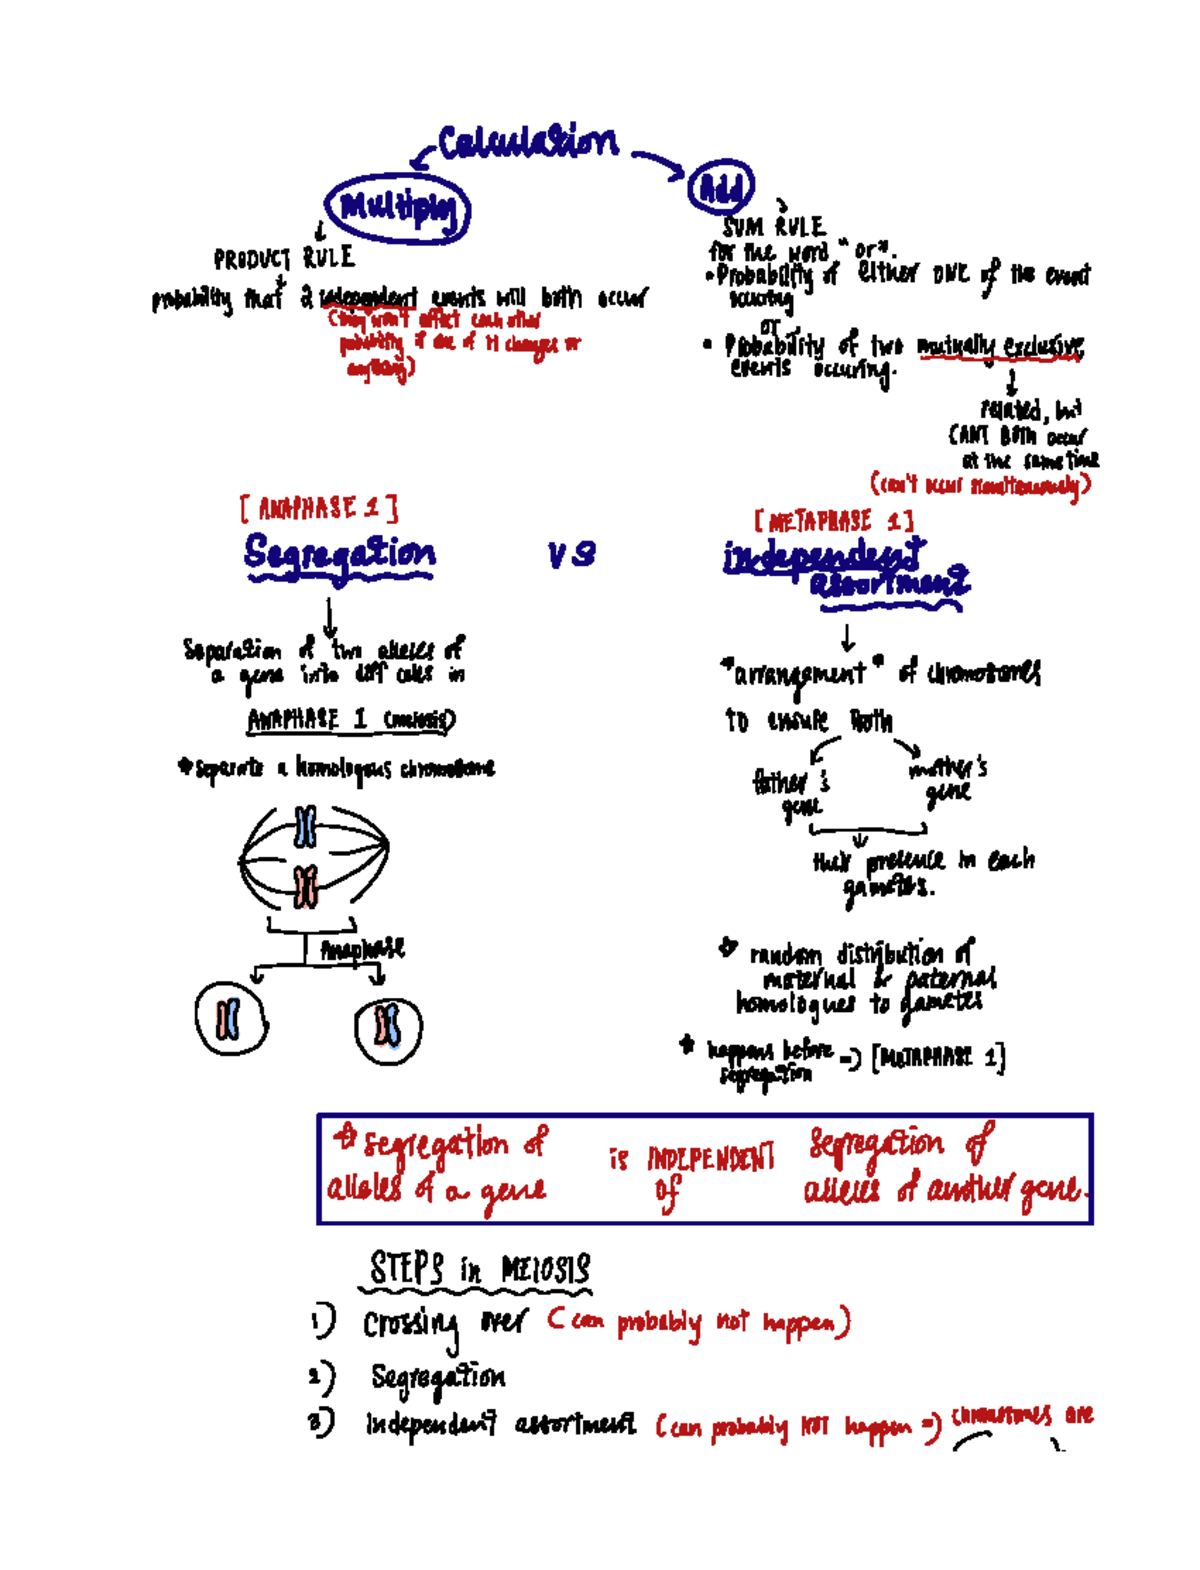 Calculation
Multiply
Add
PRODUCT RULE
probability that 2 independent events will both occur
(they won't affect each other
probability if one of it changes or
anything)
SUM RULE
for the word "or".
• Probability of either ONE of the event
occuring
or
• Probability of two mutually exclusive
events occuring.
related, but
CANT BOTH occur
at the same time
(can't occur simultaneously)
[ANAPHASE 1]
Segregation
VS
[METAPHASE 1]
independent
assortment
Separation of two alleles of
a gene into diff cells in
ANAPHASE 1 (meiosis)
* separate a homologous chromosome
Anaphase
"arrangement" of chromosomes
to ensure both
father's
gene
mother's
gene
their presence in each
gametes.
* random distribution of
maternal & paternal
homologues to gametes
* happens before => [METAPHASE 1]
segregation
* segregation of
alleles of a gene
is INDEPENDENT
of
segregation of
alleles of another gene.
STEPS in MEIOSIS
1) crossing over (can probably not happen)
2) Segregation
3) independent assortment (can probably NOT happen => chromosomes are